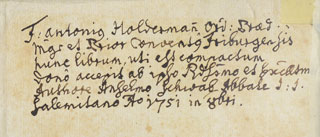 F: antonius Haldermañ Ord: Præd:
Mgr et Prior Conventus friburgensis
hunc librum, uti est compactum
dono accepit ab ipso Rdssmo et
Authore Anselmo Schwab Abbate
Salemitano Ao 1751 in 8bri.